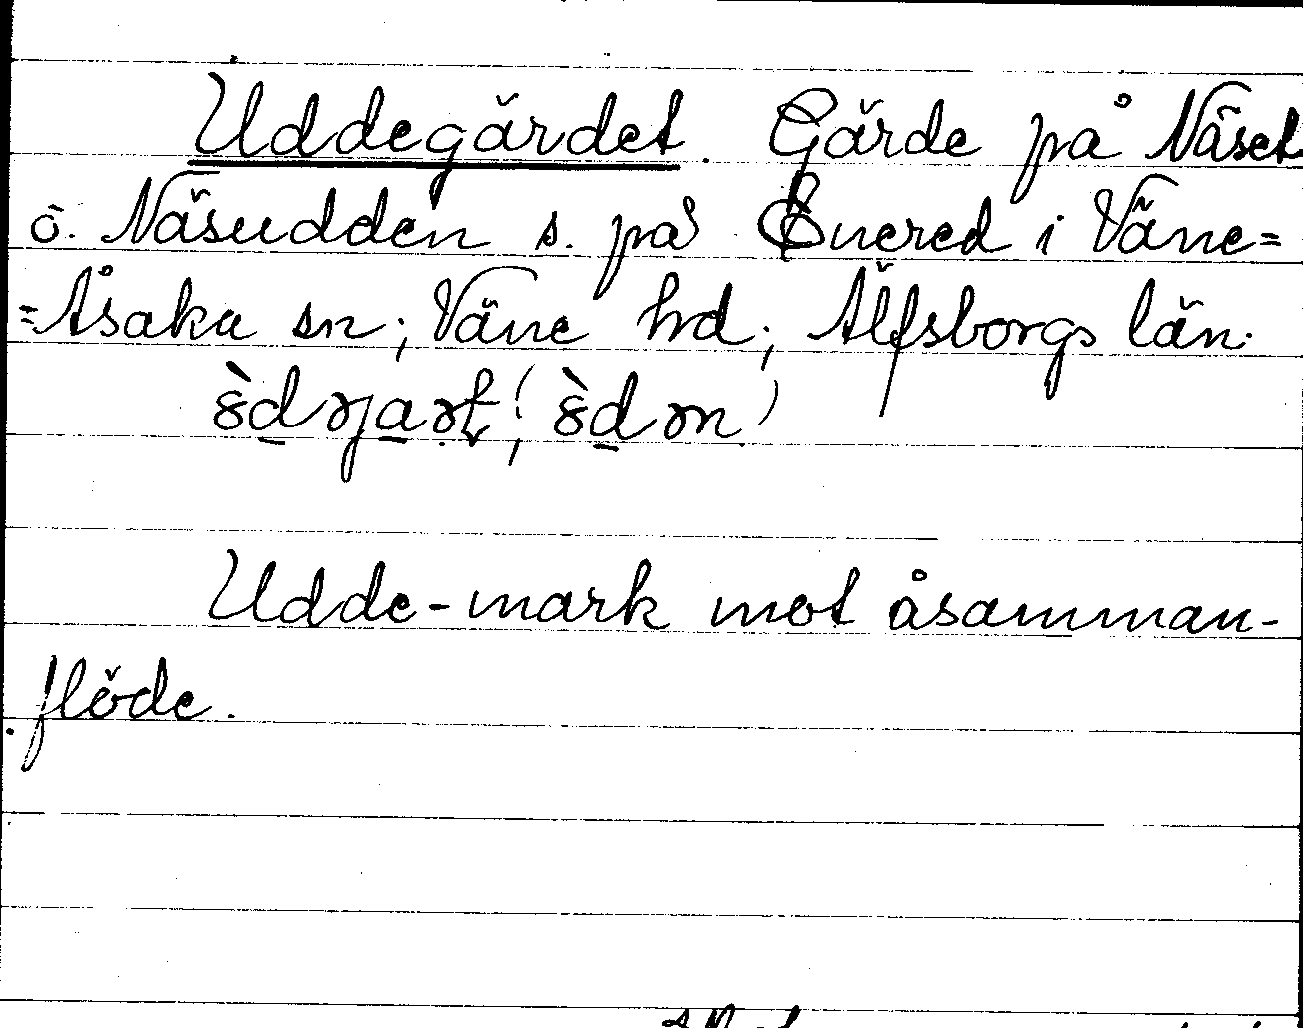 Uddegärdet. Gärde på Näset
ö. Näsudden s. på Onered i Väne=
=Åsaka sn; Väne hd; Älfsborgs län.
Udde-mark mot åsamman-
flöde.